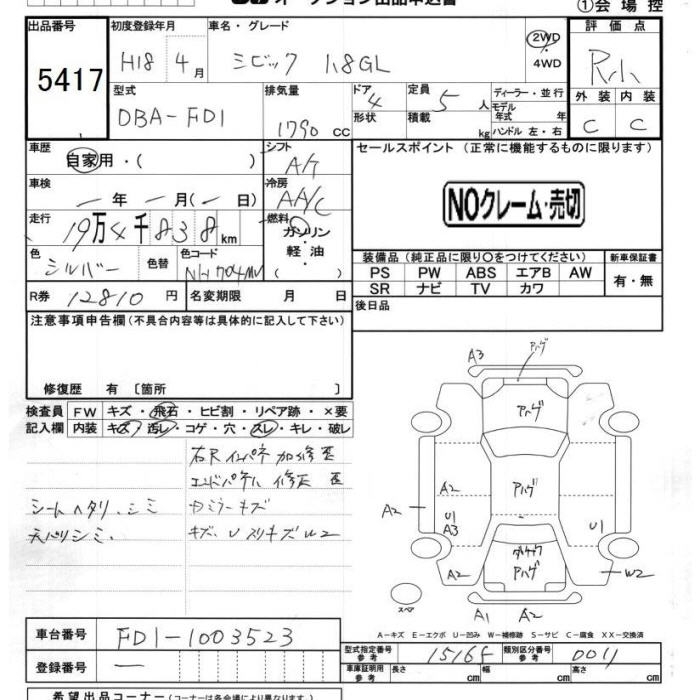 オークション出品申込書
①会場控
出品番号
5417
初度登録年月
H18 4月
車名・グレード
シビック 1.8GL
2WD
・
4WD
評価点
R小
外装 内装
C C
型式
DBA-FD1
排気量
1790 cc
ドア 4
形状
定員 5 人
積載 kg
ディーラー・並行
モデル年式 年
ハンドル 左・右
車歴
自家用・( )
シフト
A/T
車検
ー年ー月(ー日)
冷房
AA/C
走行
19万4千838km
燃料
ガソリン
・
軽油
色
シルバー
色替
色コード
NH704MV
R券 12810円
名変期限 月 日
セールスポイント (正常に機能するものに限ります)
NOクレーム・売切
装備品 (純正品に限り○をつけてください)
新車保証書
PS PW ABS エアB AW
SR ナビ TV カワ
有・無
後日品
注意事項申告欄 (不具合内容等は具体的に記入して下さい)
修復歴 有 〔箇所 〕
検査員記入欄
FW キズ・飛石・ヒビ割・リペア跡・×要
内装 キズ・汚レ・コゲ・穴・スレ・キレ・破レ
右Rインパネ加修歪
エンドパネル 修正 歪
シートヘタリ、シミ
天バリシミ、
キズ、Uスリキズ W2
A3
アハゲ
アハゲ
A2
アハゲ
A2
U1
A3
U1
アハゲ
A2
W2
スペア
A1 A2
A-キズ E-エクボ U-凹み W-補修跡 S-サビ C-腐食 XX-交換済
車台番号
FD1-1003523
登録番号
ー
型式指定番号
参考
15164
類別区分番号
参考
0011
車庫証明用
参考
長さ cm
幅 cm
高さ cm
希望出品コーナー (コーナーは各会場により異なります。)